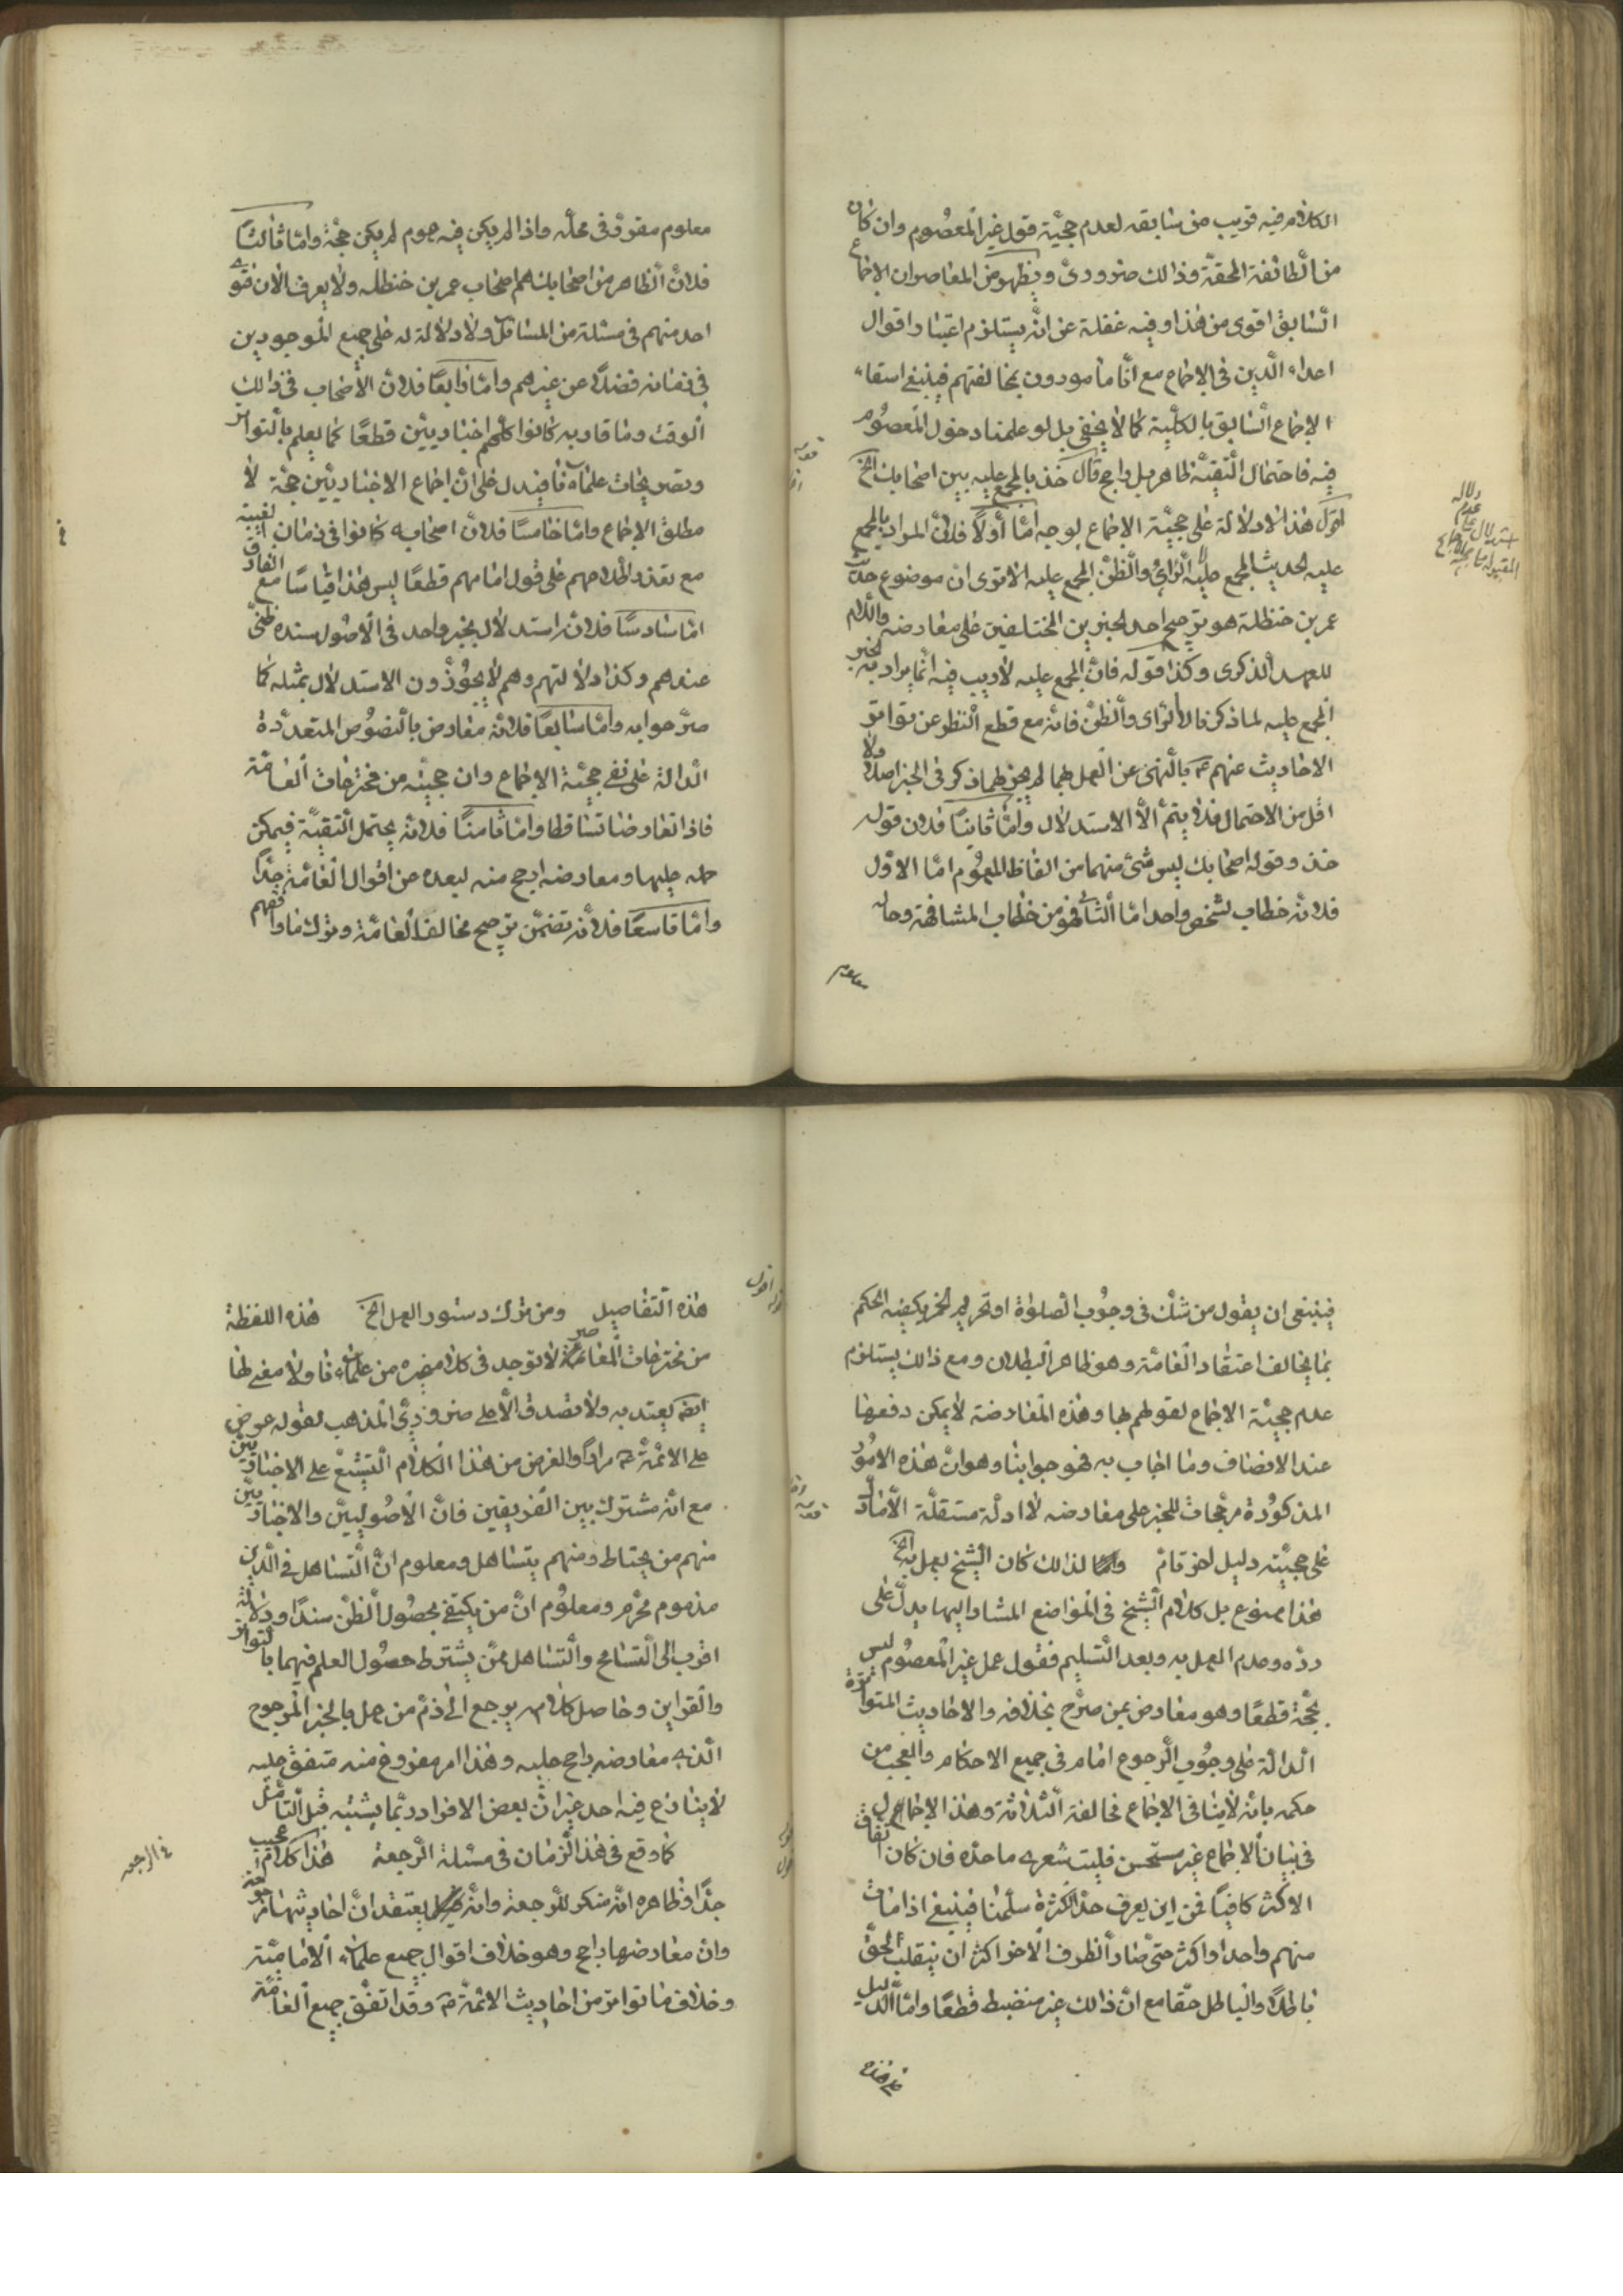 الكلام فيه قريب من سابقه لعدم حجيّة قول غير المعصوم وان كان
من الطائفة المحقّة وذالك ضرورىّ ويظهر من المعاصر ان الاجماع
السّابق اقوى من هذا وفيه غفلة عن انّه يستلزم اعتبار اقوال
اعداء الدّين فى الاجماع مع انّا مأمورون بمخالفتهم فينبغى اسقاء
الاجماع السّابق بالكليّة كما لا يخفى بل لو علمنا دخول المعصوم
فيه فاحتمال التّقيّة ظاهر بل راجح قال خذ بالمجمع عليه بين اصحابك الخ
اقول هذا لا دلالة على حجيّة الاجماع لوجوه امّا اولًا فلانّ المراد بالمجمع
عليه الحديث المجمع عليه لا الرّاى والظّنّ المجمع عليه الاترى ان موضوع حديث
عمر بن حنظلة هو ترجيح احد الخبرين المختلفين على معارضه واللّام
للعهد الذكرى وكذا قوله فانّ المجمع عليه لا ريب فيه انّما يراد به الخبر
المجمع عليه لما ذكرنا لا الرّاى والظّنّ فانّه مع قطع النّظر عن تواتر
الاحاديث عنهم ع بالنّهى عن العمل بهما لم يجز لهما ذكر فى الخبر اصلًا ولا
اقل من الاحتمال فلا يتمّ الاستدلال وامّا ثانيًا فلان قوله
خذ وقوله اصحابك ليس شئ منهما من الفاظ العموم امّا الاوّل
فلانّه خطاب لشخص واحد امّا الثّانى فهو من خطاب المشافهة وحاله
معلوم
معلوم مقرّر فى محلّه واذا لم يكن فيه عموم لم يكن حجّة وامّا ثالثًا
فلانّ الظّاهر من اصحابك هم اصحاب عمر بن حنظله ولا يعرف الان فتوى
احد منهم فى مسئلة من المسائل ولا دلالة له على جميع الموجودين
فى زمانه فضلًا عن غيرهم وامّا رابعًا فلانّ الاصحاب فى ذالك
الوقت وما قاربه كانوا كلّهم اخباريين قطعًا كما يعلم بالتّواتر
وتصريحات علمائنا فيدل على انّ اجماع الاخباريّين حجّة لا
مطلق الاجماع وامّا خامسًا فلانّ اصحابه كانوا فى زمان الغيبة
مع تعذر اطّلاعهم على قول امامهم قطعًا ليس هذا قياسًا مع الفارق
امّا سادسًا فلانّه استدلال بخبر واحد فى الاصول سنده ظنّى
عندهم وكذا دلالتهم وهم لا يجوّزون الاستدلال بمثله كما
مرّ جوابه وامّا سابعًا فلانّه معارض بالنّصوص المتعدّدة
الدّالة على نفى حجيّة الاجماع وان حجيّته من مخترعات العامّة
فاذا تعارضا تساقطا وامّا ثامنًا فلانّه يحتمل التّقيّة فيمكن
حمله عليها ومعارضه ارجح منه لبعده من اقوال العامّة جدًّا
وامّا تاسعًا فلانّه تضمّن ترجيح مخالف العامّة وترك ما وافقهم
فينبغى ان يقول من شكّ فى وجوب الصّلوة او تحريم الخمر يكفيه الحكم
بما يخالف اعتقاد العامّة وهو ظاهر البطلان ومع ذالك يستلزم
عدم حجيّة الاجماع لقولهم بها وهذه المعارضة لا يمكن دفعها
عند الانصاف وما اجاب به فهو جوابنا وهو انّ هذه الامور
المذكورة مرجّحات للخبر على معارضه لا ادلّة مستقلّة الّا ما دلّ
على حجيّته دليل اخر تامّ ولذالك كان الشّيخ يعمل به الخ
هذا ممنوع بل كلام الشّيخ فى المواضع المشار اليها يدلّ على
ردّه وعدم العمل به وبعد التّسليم فقول عمل غير المعصوم ليس
بحجّة قطعًا وهو معارض بمن صرّح بخلافه والاحاديث المتواترة
الدالّة على وجوب الرّجوع امام فى جميع الاحكام والعجب من
حكمه بانّه لا ينافى الاجماع مخالفة الثّلاثة وهذا الاجماع
فى بيان الاجماع غير مستحسن فليت شعرى ما حدّه فان كان اتفاق
الاكثر كافيًا فمن اين يعرف حدّ الكثرة سلّمنا فينبغى اذا مات
منهم واحد او اكثر حتّى صار الطرف الاخر اكثر ان ينقلب الحقّ
باطلًا والباطل حقّا مع انّ ذالك غير منضبط قطعًا وامّا الدّليل
هذه التّفاصيل ومن ترك دستور العمل الخ هذه اللفظة
من مخترعات المعاصر لا توجد فى كلام غيره من علمائنا ولا معنى لها
ايضًا يعتد به ولا تصدق الّا على ضرورىّ المذهب لقوله عرض
على الائمّة ع مرارًا والغرض من هذا الكلام التّشنيع على الاخباريّين
مع انّه مشترك بين الفريقين فانّ الاصوليّين والاخباريّين
منهم من يحتاط ومنهم يتساهل ومعلوم انّ التّساهل فى الدّين
مذموم محرّم ومعلوم انّ من يكتفى بحصول الظّنّ سندًا ودلالة
اقرب الى التّسامح والتّساهل ممّن يشترط حصول العلم فيهما بالتواتر
والقراين وحاصل كلامه يرجع الى ذمّ من عمل بالخبر المرجوح
الّذى معارضه راجح عليه وهذا امر مفروغ منه متفق عليه
لا ينازع فيه احد غير انّ بعض الافراد ربّما يشتبه قبل التّأمّل
كما وقع فى هذا الزّمان فى مسئلة الرّجعة هذا كلام عجيب
جدًّا وظاهره انّه منكر للرّجعة وانّه يعتقد انّ احاديثها مرجوحة
وان معارضها راجح وهو خلاف اقوال جميع علمائنا الاماميّة
وخلاف ما تواتر من احاديث الائمّة ع وقد اتّفق جميع العامّة
فى الرجعه